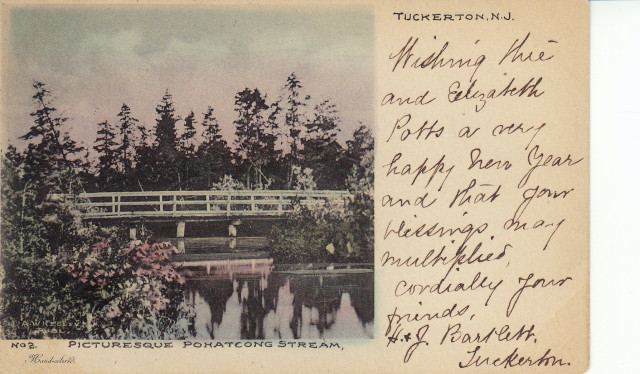 TUCKERTON, N.J.
Wishing thee
and Elizabeth
Potts a very
happy New Year
and that your
blessings may
multiplied,
cordially your
friends,
H & J. Bartlett.
Tuckerton.
No 2. PICTURESQUE POHATCONG STREAM,
Handcolored.